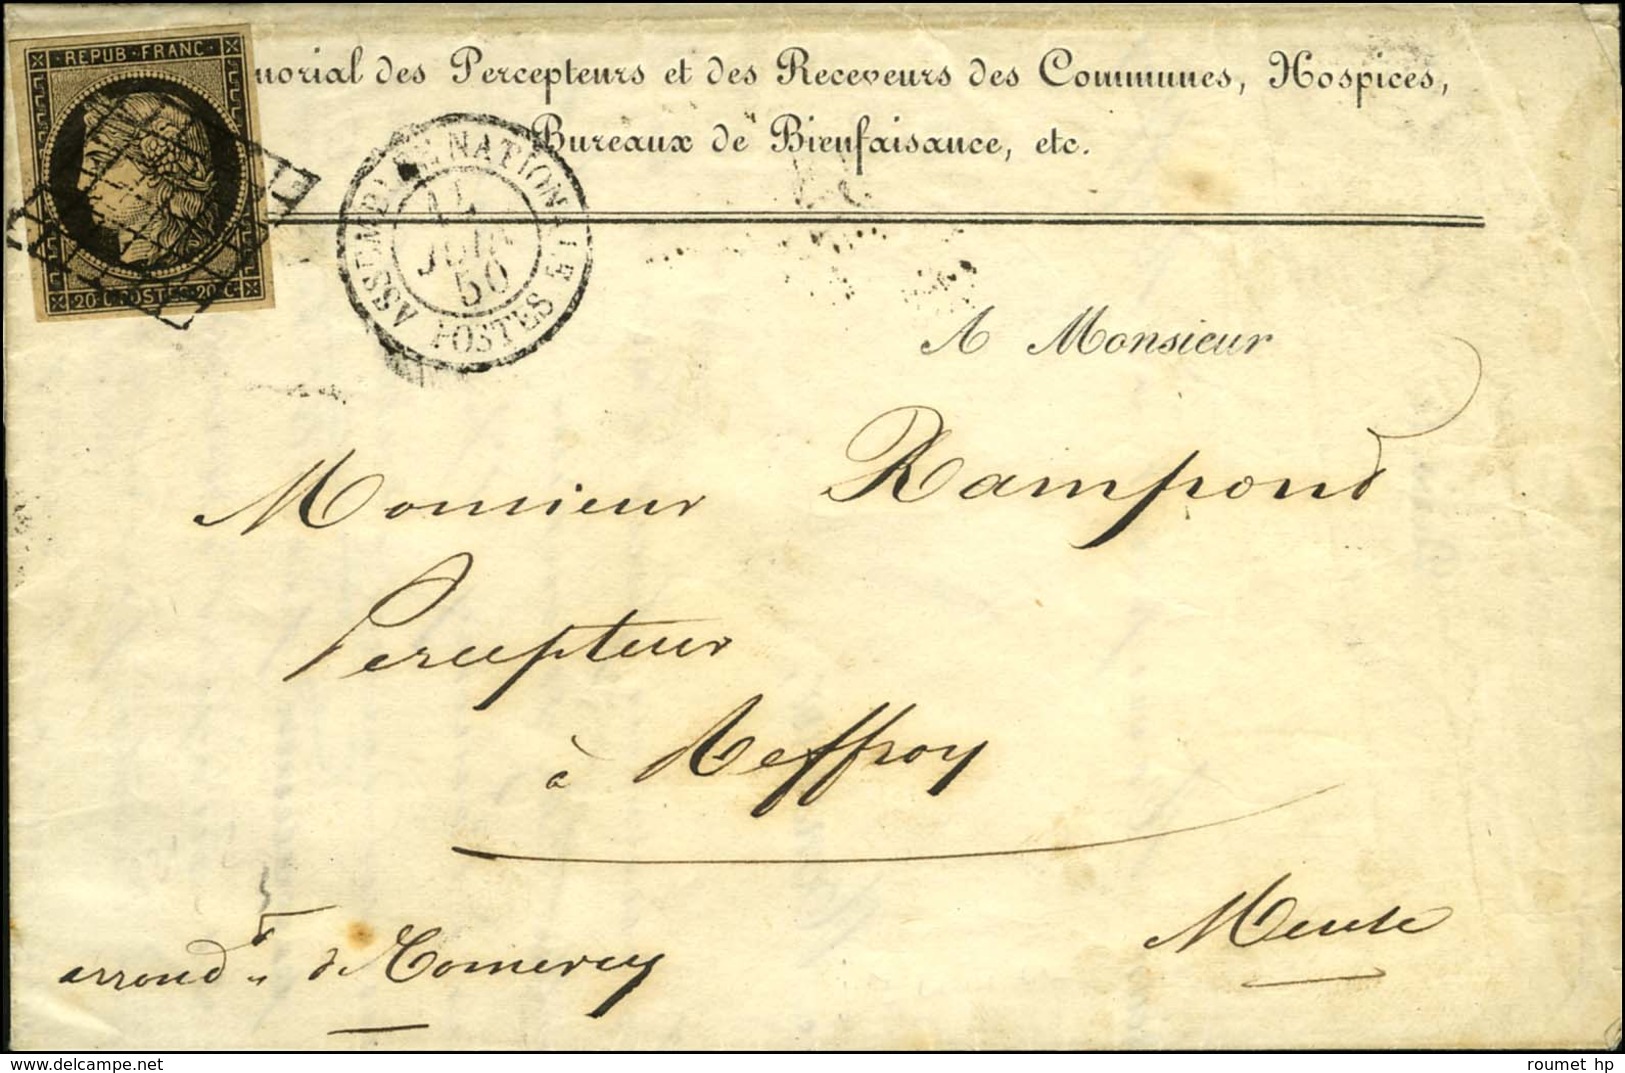 REPUB · FRANC ·
20 C POSTES 20 C
morial des Percepteurs et des Receveurs des Communes, Hospices,
Bureaux de Bienfaisance, etc.
ASSEMBLEE NATIONALE
JUIN
50
POSTES
A Monsieur
Monsieur Rampond
Percepteur
à Reffroy
Meuse
arrond.t de Comercy
roumet hp